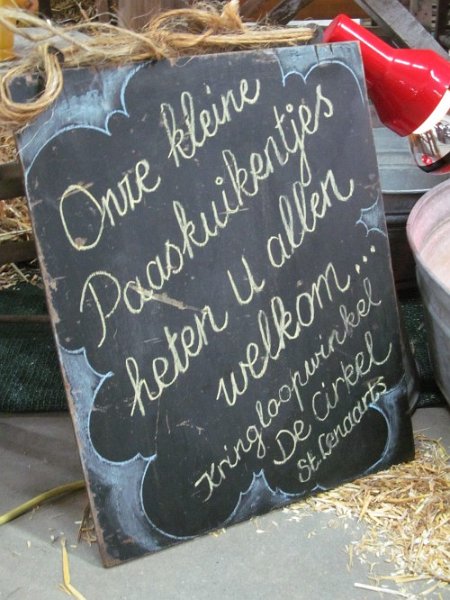 Onze kleine
Paaskuikentjes
heten u allen
welkom...
Kringloopwinkel
De Cirkel
St. Lenaarts